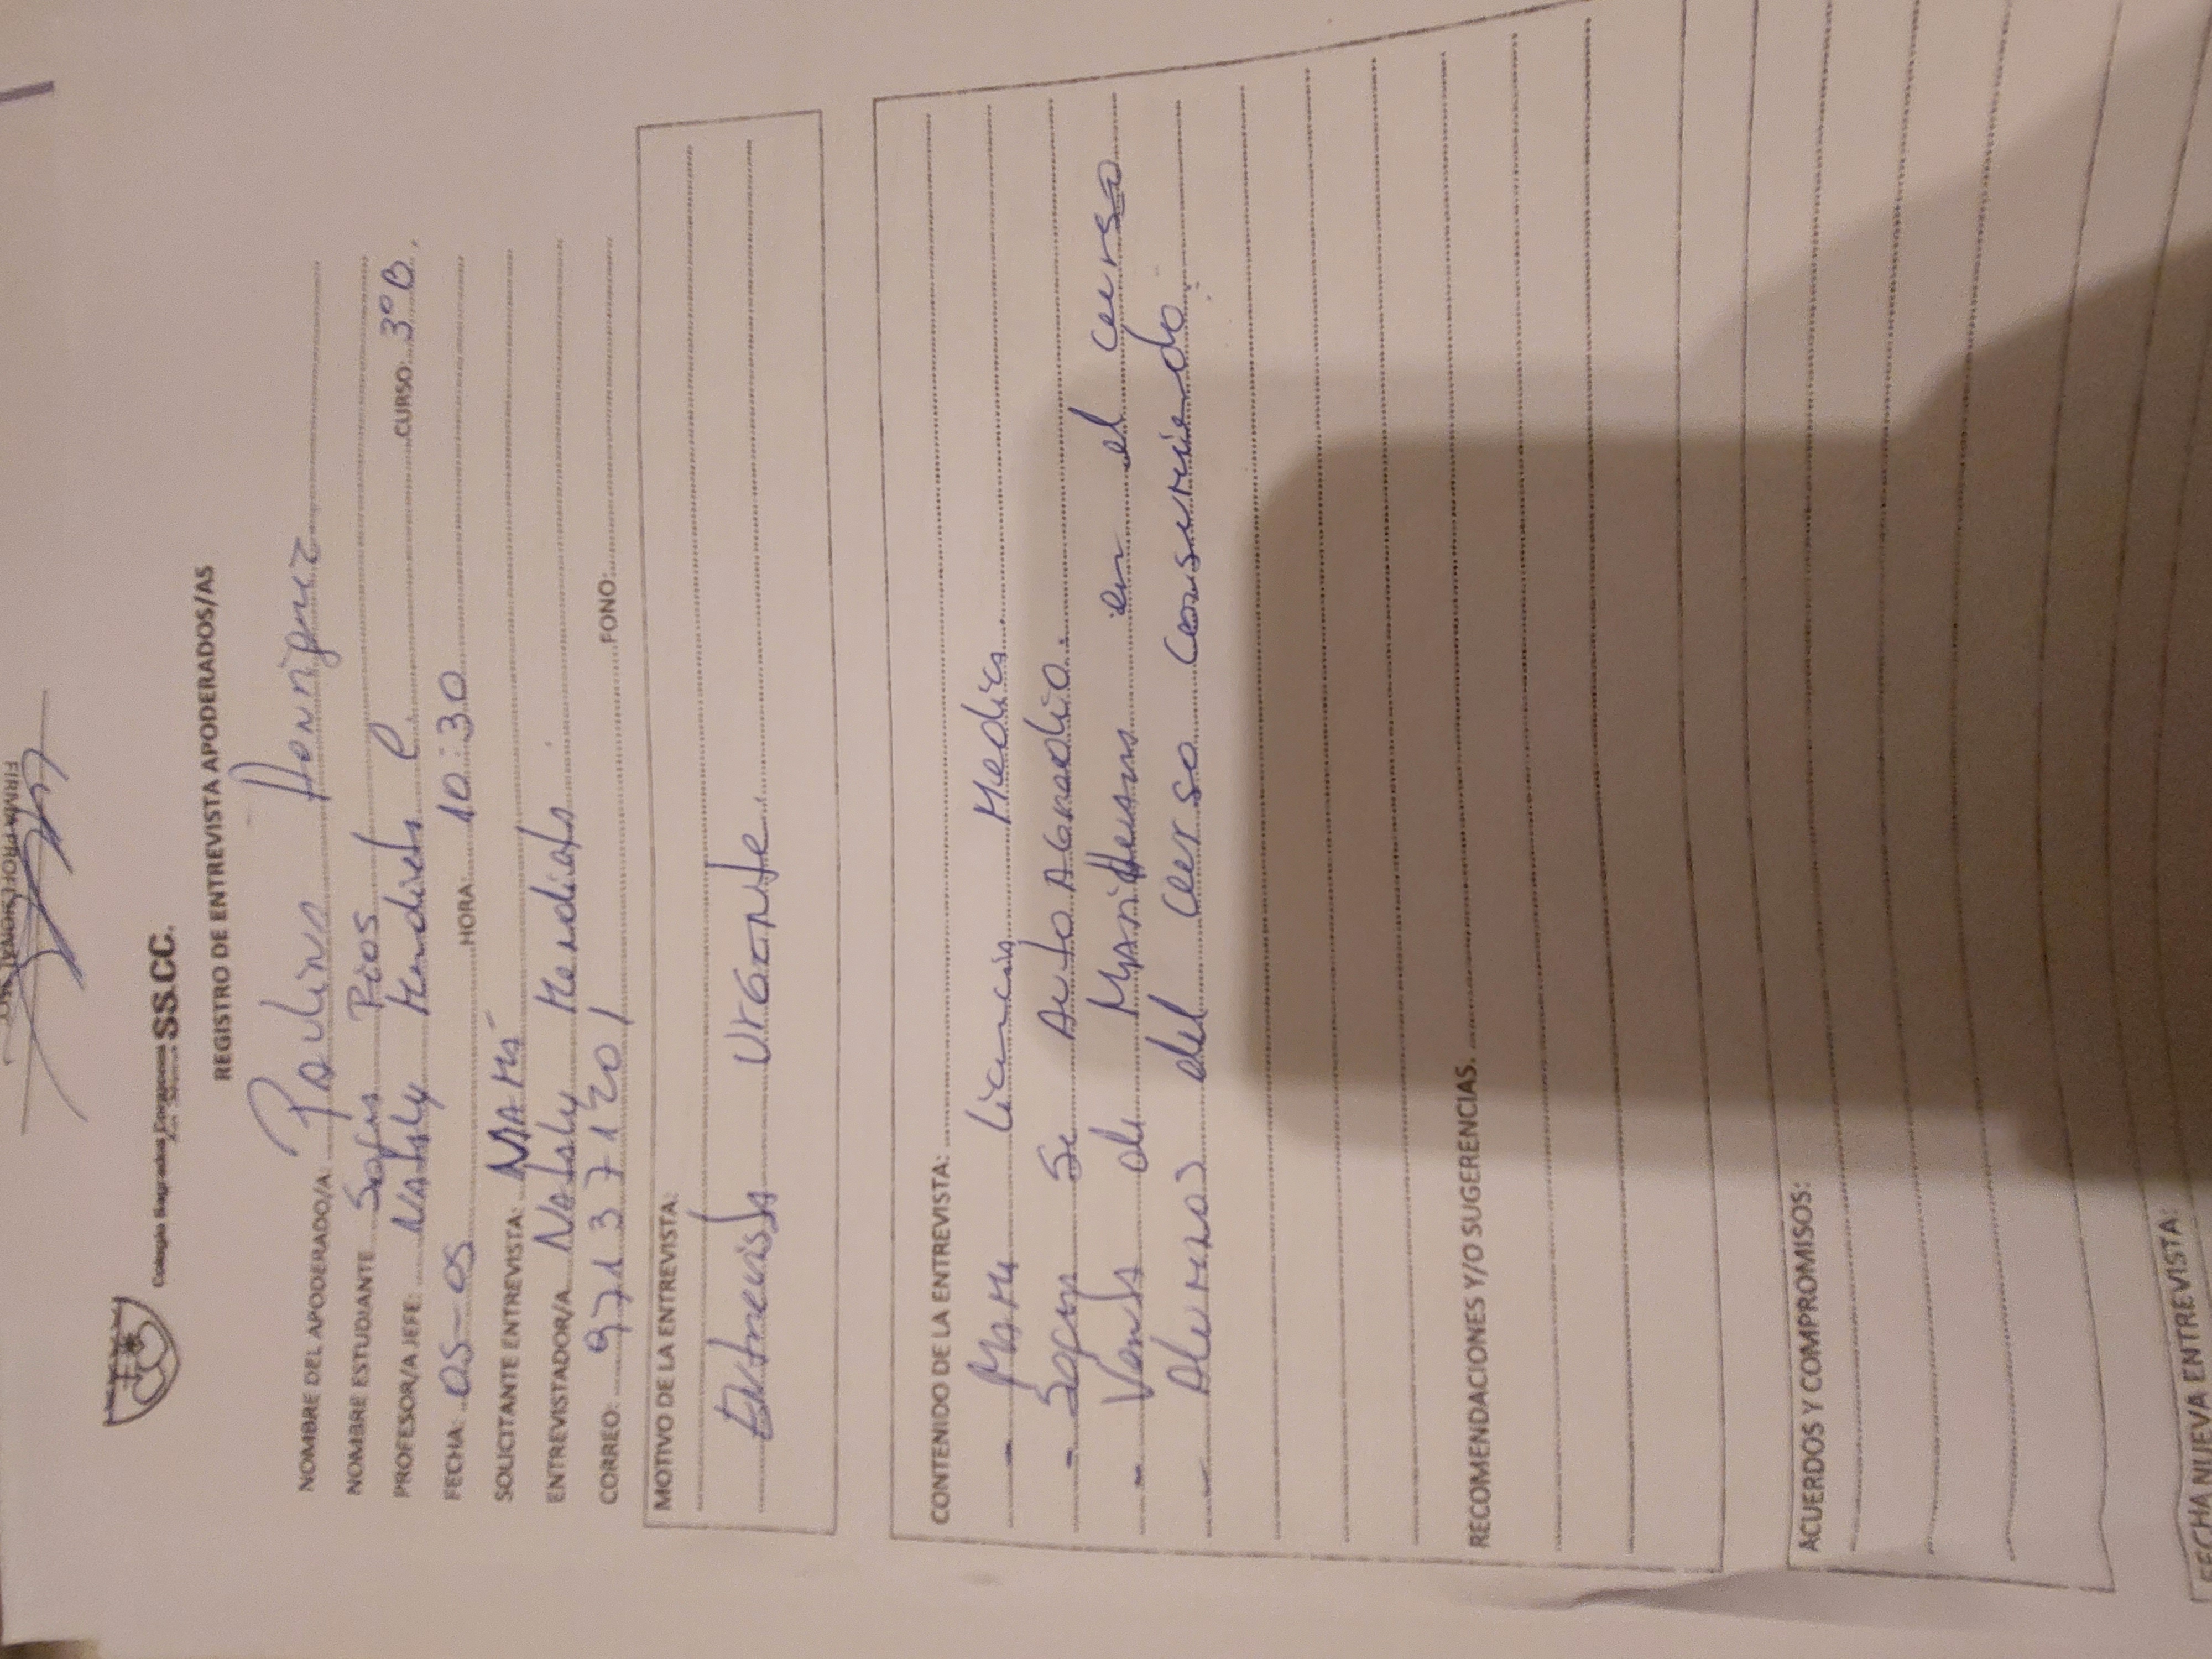 FIRMA PROFESIONAL
Colegio Sagrados Corazones SS.CC.
REGISTRO DE ENTREVISTA APODERADOS/AS
NOMBRE DEL APODERADO/A: Paulina
NOMBRE ESTUDIANTE Sofia Rios
PROFESOR/A JEFE: Nataly Mendieta C CURSO: 3°B.
FECHA: 05-05 HORA: 10:30
SOLICITANTE ENTREVISTA: MAMá
ENTREVISTADOR/A Nataly Mendieta.
CORREO: 971371201 FONO:
MOTIVO DE LA ENTREVISTA:
Entrevista Urgente.
CONTENIDO DE LA ENTREVISTA:
- Mama licencia Medica.
- Se Auto Agredio.
- Venta de Marihuana en el curso
- Alumnos del curso consumiendo.
RECOMENDACIONES Y/O SUGERENCIAS.
ACUERDOS Y COMPROMISOS:
FECHA NUEVA ENTREVISTA: